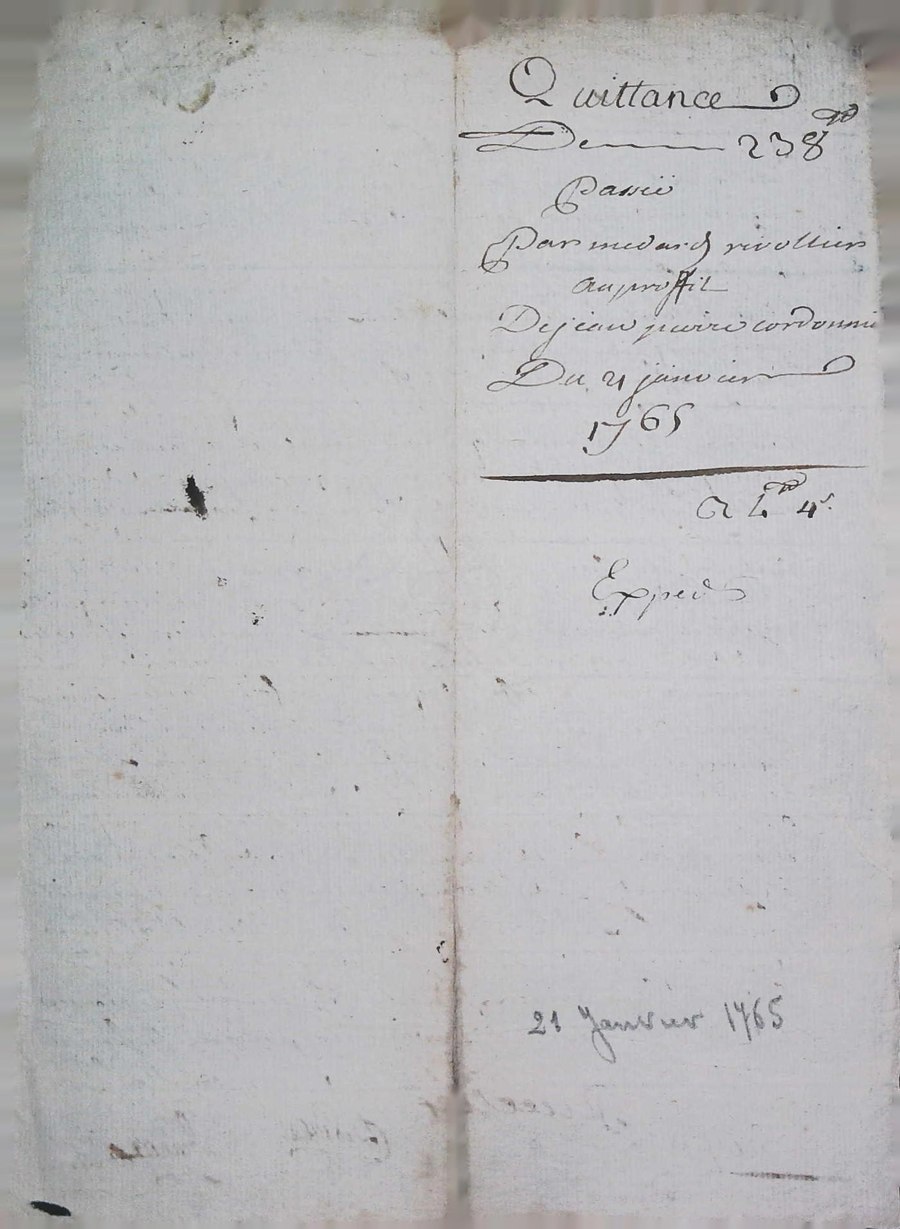 Quittance
De 238₶
Passée
Par medard rivollier
au proffit
De jean pierre cordonnie
Du 21 janvier
1765
4ˢ
Exped
21 Janvier 1765